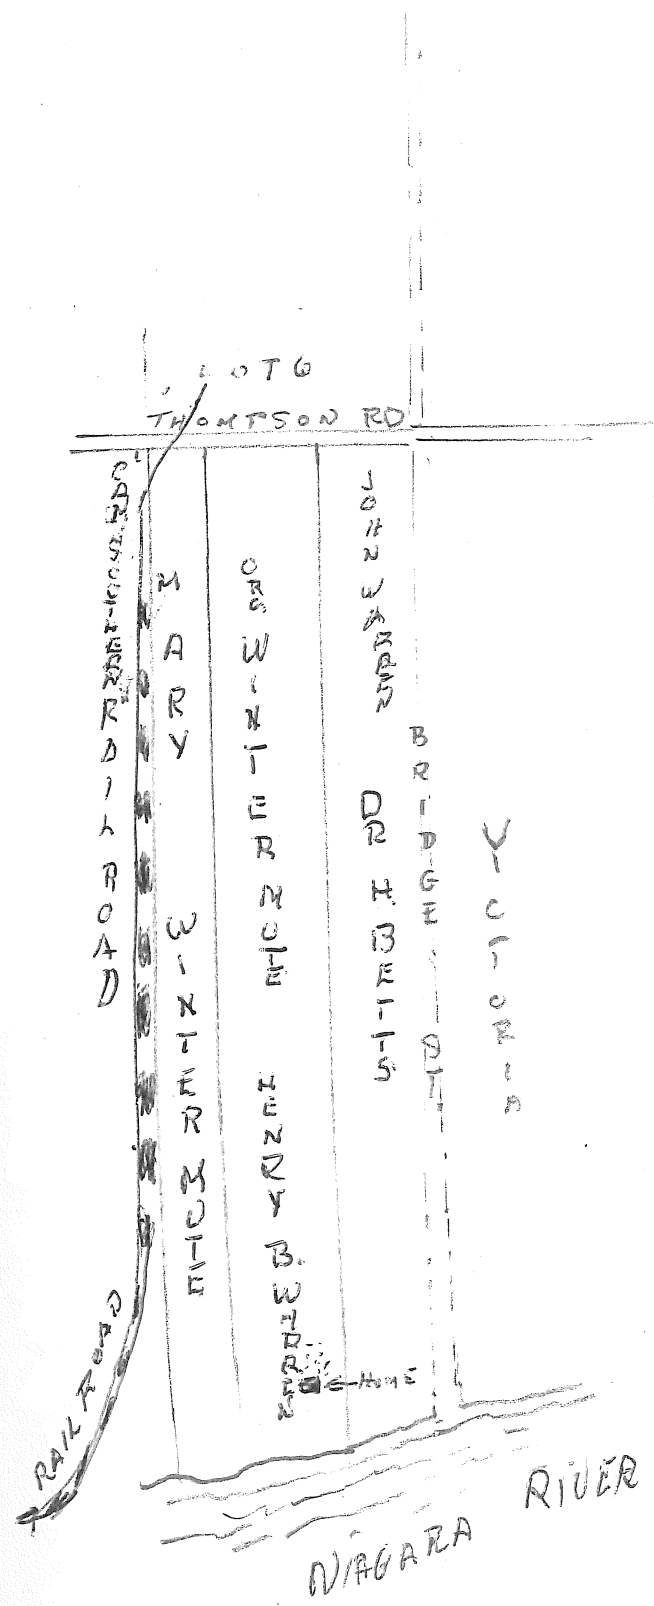 LOT 6
THOMPSON RD
RAILROAD
MARY WINTERMUTE
ORG. WINTERMUTE
HENRY B. WARREN
JOHN WARREN
DR H. BETTS
BRIDGE ST
VICTORIA
←HOME
RAILROAD
NIAGARA RIVER